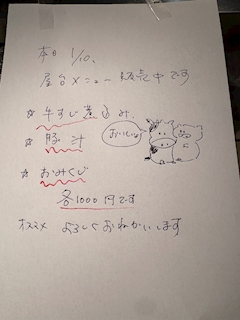 本日 1/10、
屋台メニュー販売中です
☆ 牛すじ煮込み
おいしいよ
☆ 豚汁
☆ おみくじ
各1000円です
オススメ よろしくおねがいします